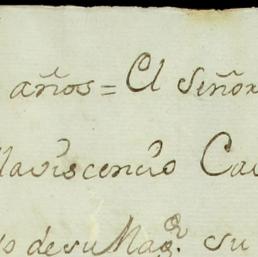 años = El Señor
laviscencio Ca
de su Mag.ᵈ su